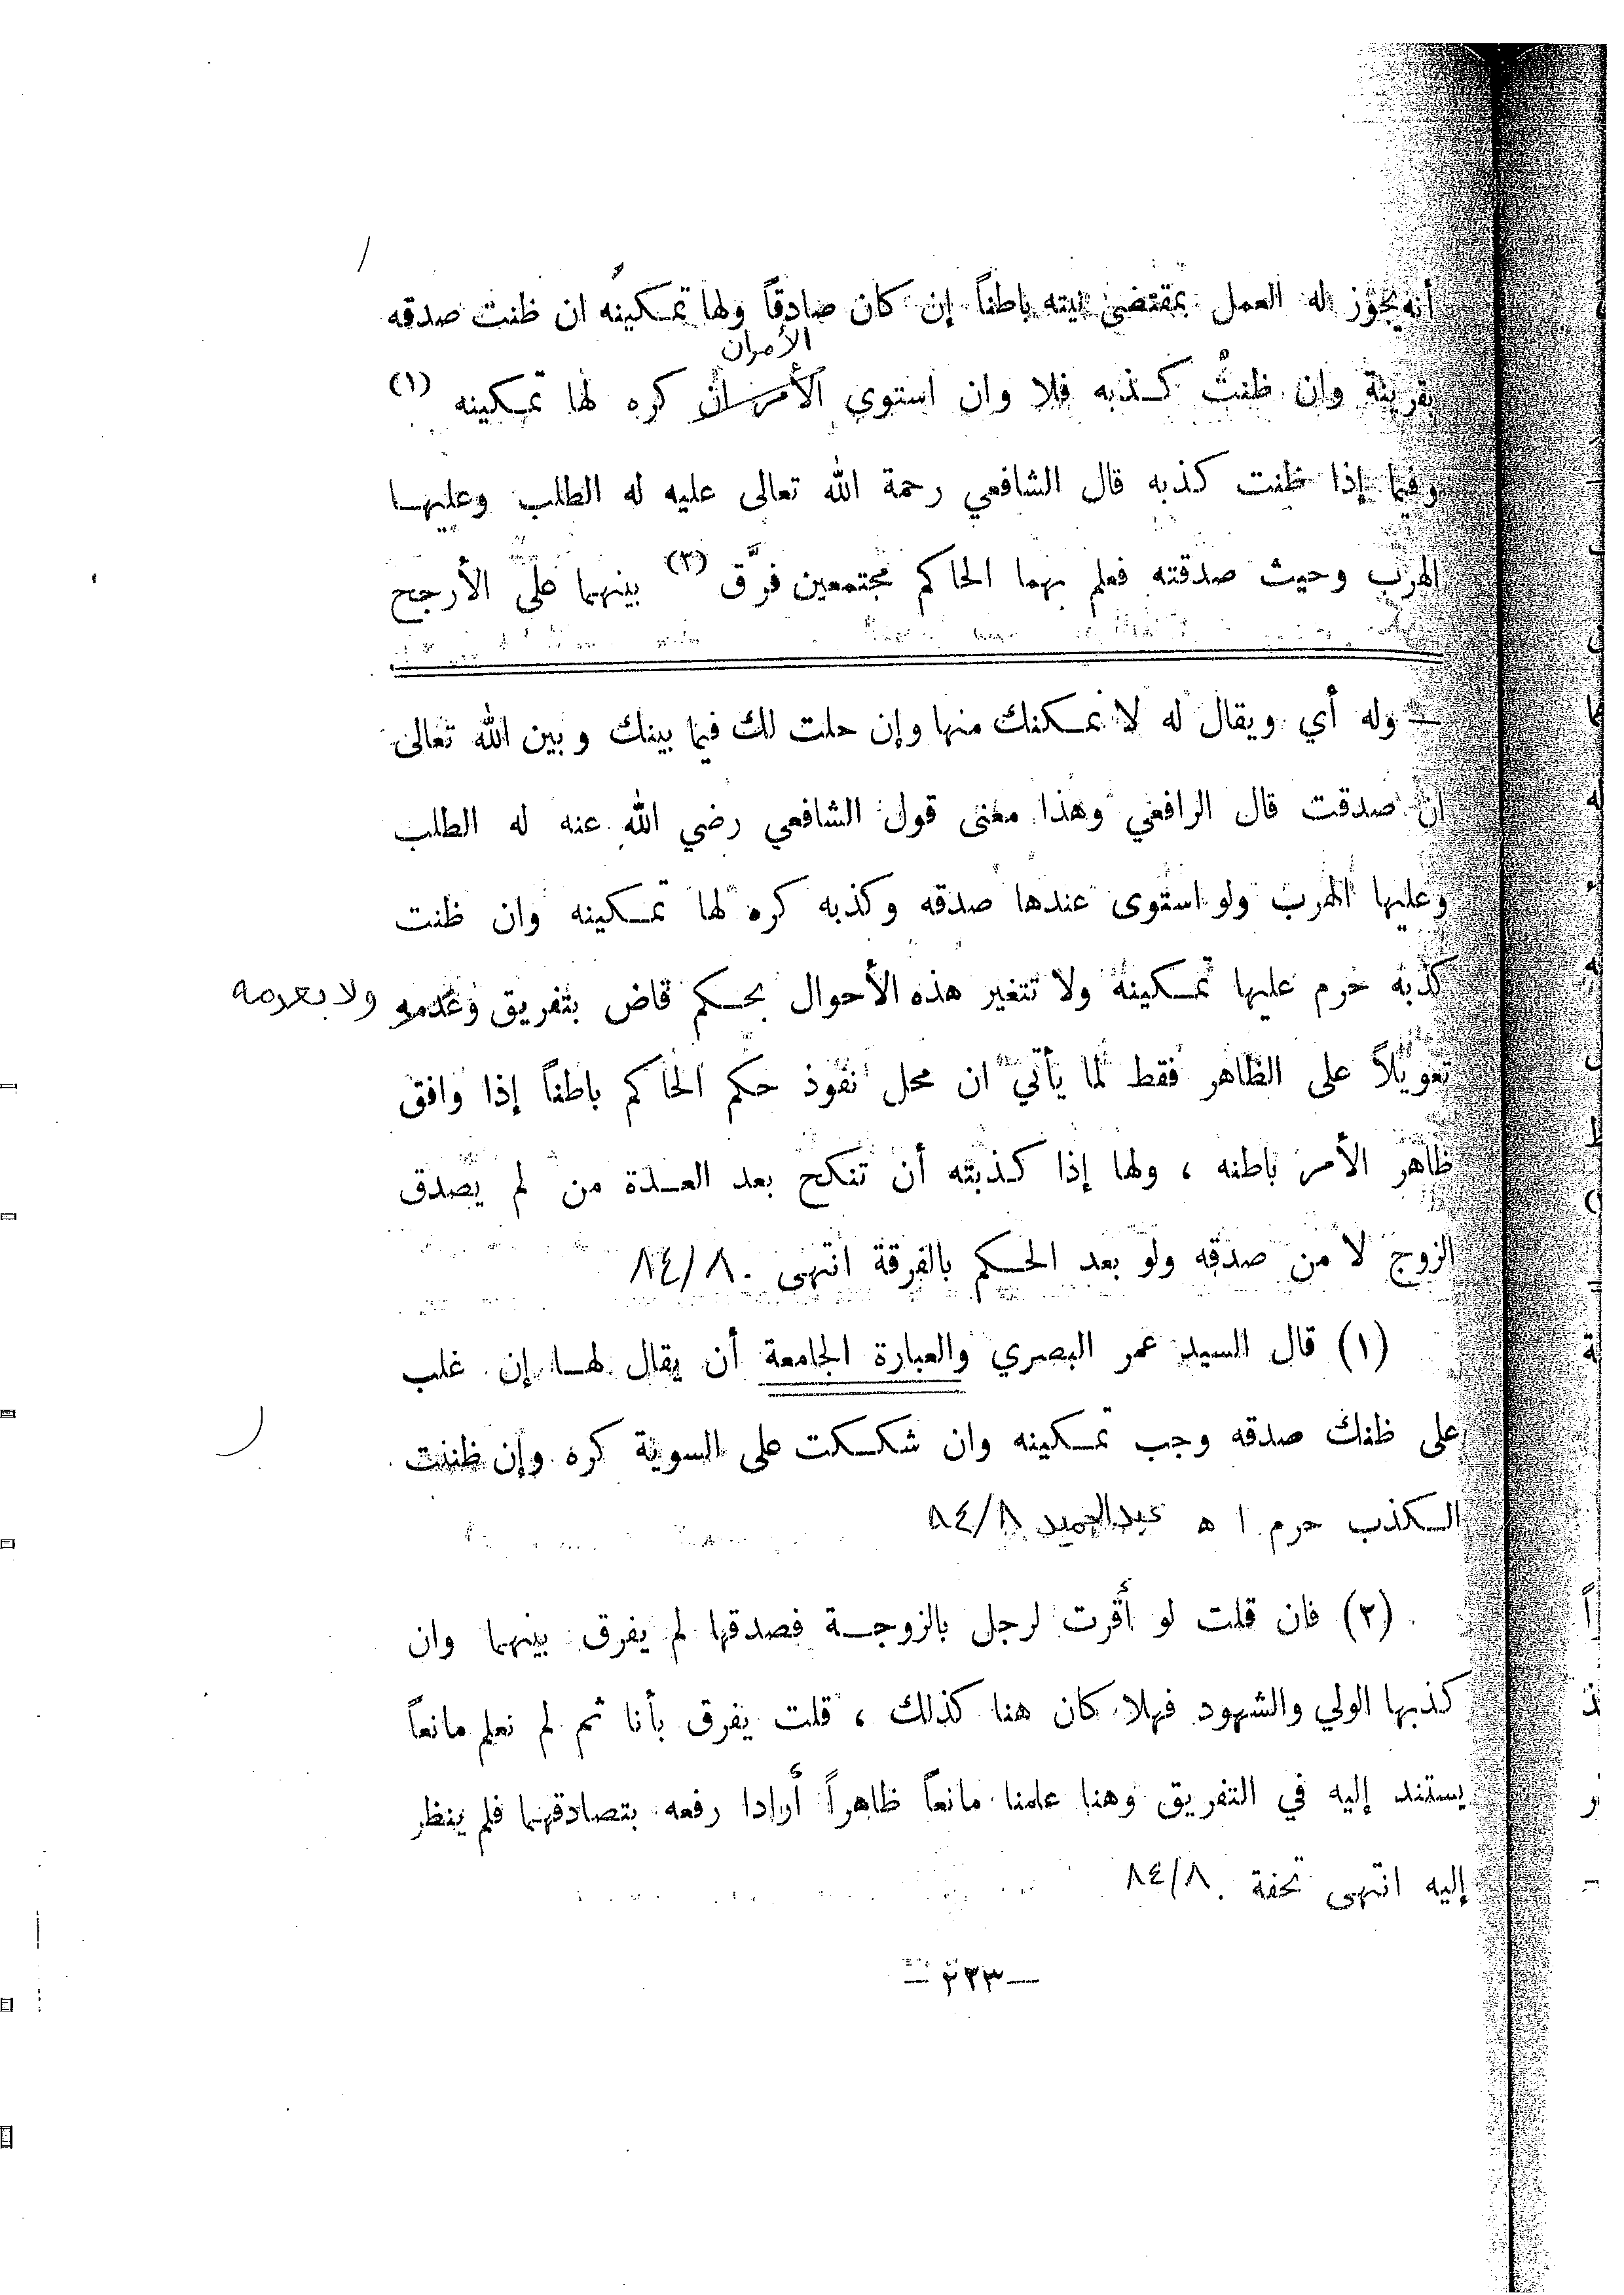 أنه يجوز له العمل بمقتضى نيته باطناً إن كان صادقاً ولها تمكينه ان ظنت صدقه
الأمران
بقرينة وان ظنت كذبه فلا وان استوى الأمران كره لها تمكينه (١)
وفيما إذا ظنت كذبه قال الشافعي رحمة الله تعالى عليه له الطلب وعليها
الهرب وحيث صدقته فعلم بهما الحاكم مجتمعين فرَّق (٢) بينهما على الأرجح
= وله أي ويقال له لا نمكنك منها وإن حلت لك فيما بينك وبين الله تعالى
ان صدقت قال الرافعي وهذا معنى قول الشافعي رضي الله عنه له الطلب
وعليها الهرب ولو استوى عندها صدقه وكذبه كره لها تمكينه وان ظنت
كذبه حرم عليها تمكينه ولا تتغير هذه الأحوال بحكم قاض بتفريق وعدمه ولا بعدمه
تعويلاً على الظاهر فقط لما يأتي ان محل نفوذ حكم الحاكم باطناً إذا وافق
ظاهر الأمر باطنه ، ولها إذا كذبته أن تنكح بعد العدة من لم يصدق
الزوج لا من صدقه ولو بعد الحكم بالفرقة انتهى . ٨٤/٨
(١) قال السيد عمر البصري والعبارة الجامعة أن يقال لها إن غلب
على ظنك صدقه وجب تمكينه وان شككت على السوية كره وإن ظننت
الكذب حرم ا ه عبدالحميد ٨٤/٨
(٢) فان قلت لو أقرت لرجل بالزوجية فصدقها لم يفرق بينهما وان
كذبها الولي والشهود فهلا كان هنا كذلك ، قلت يفرق بأنا ثم لم نعلم مانعاً
يستند إليه في التفريق وهنا علمنا مانعاً ظاهراً أرادا رفعه بتصادقهما فلم ينظر
إليه انتهى تحفة . ٨٤/٨
— ٢٣٣ —